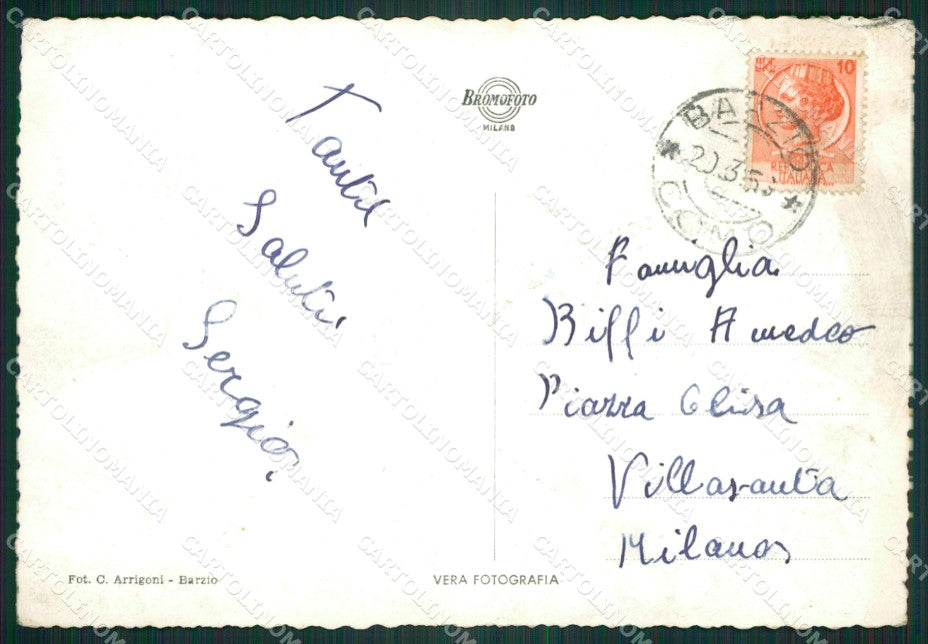 BROMOFOTO
MILANO
Tanti
Saluti
Sergio
10
REPUBBLICA
ITALIANA
BARZIO
20.3.
COMO
Famiglia
Biffi Amedeo
Piazza Chiesa
Villasanta
Milano
Fot. C. Arrigoni - Barzio
VERA FOTOGRAFIA
CARTOLINOMANIA